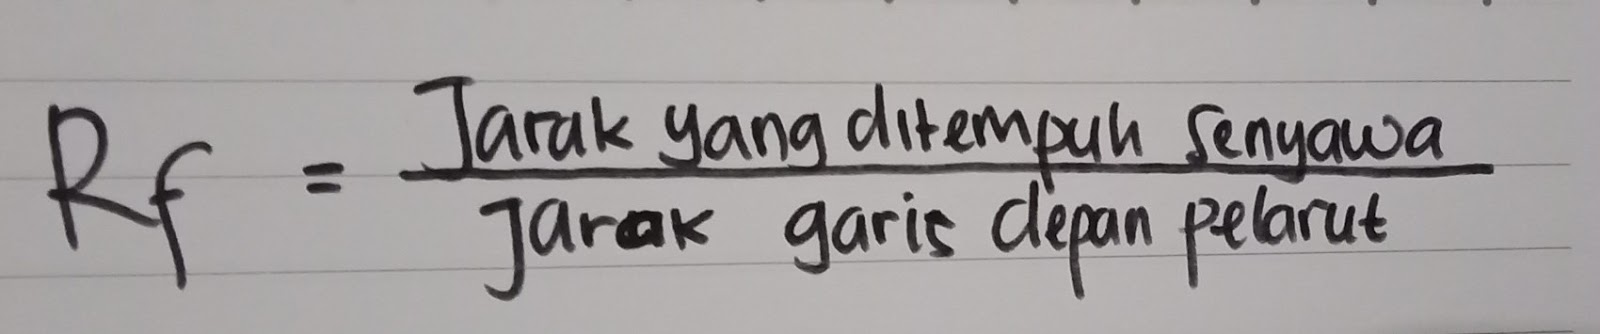 Rf = Jarak yang ditempuh senyawa
jarak garis depan pelarut